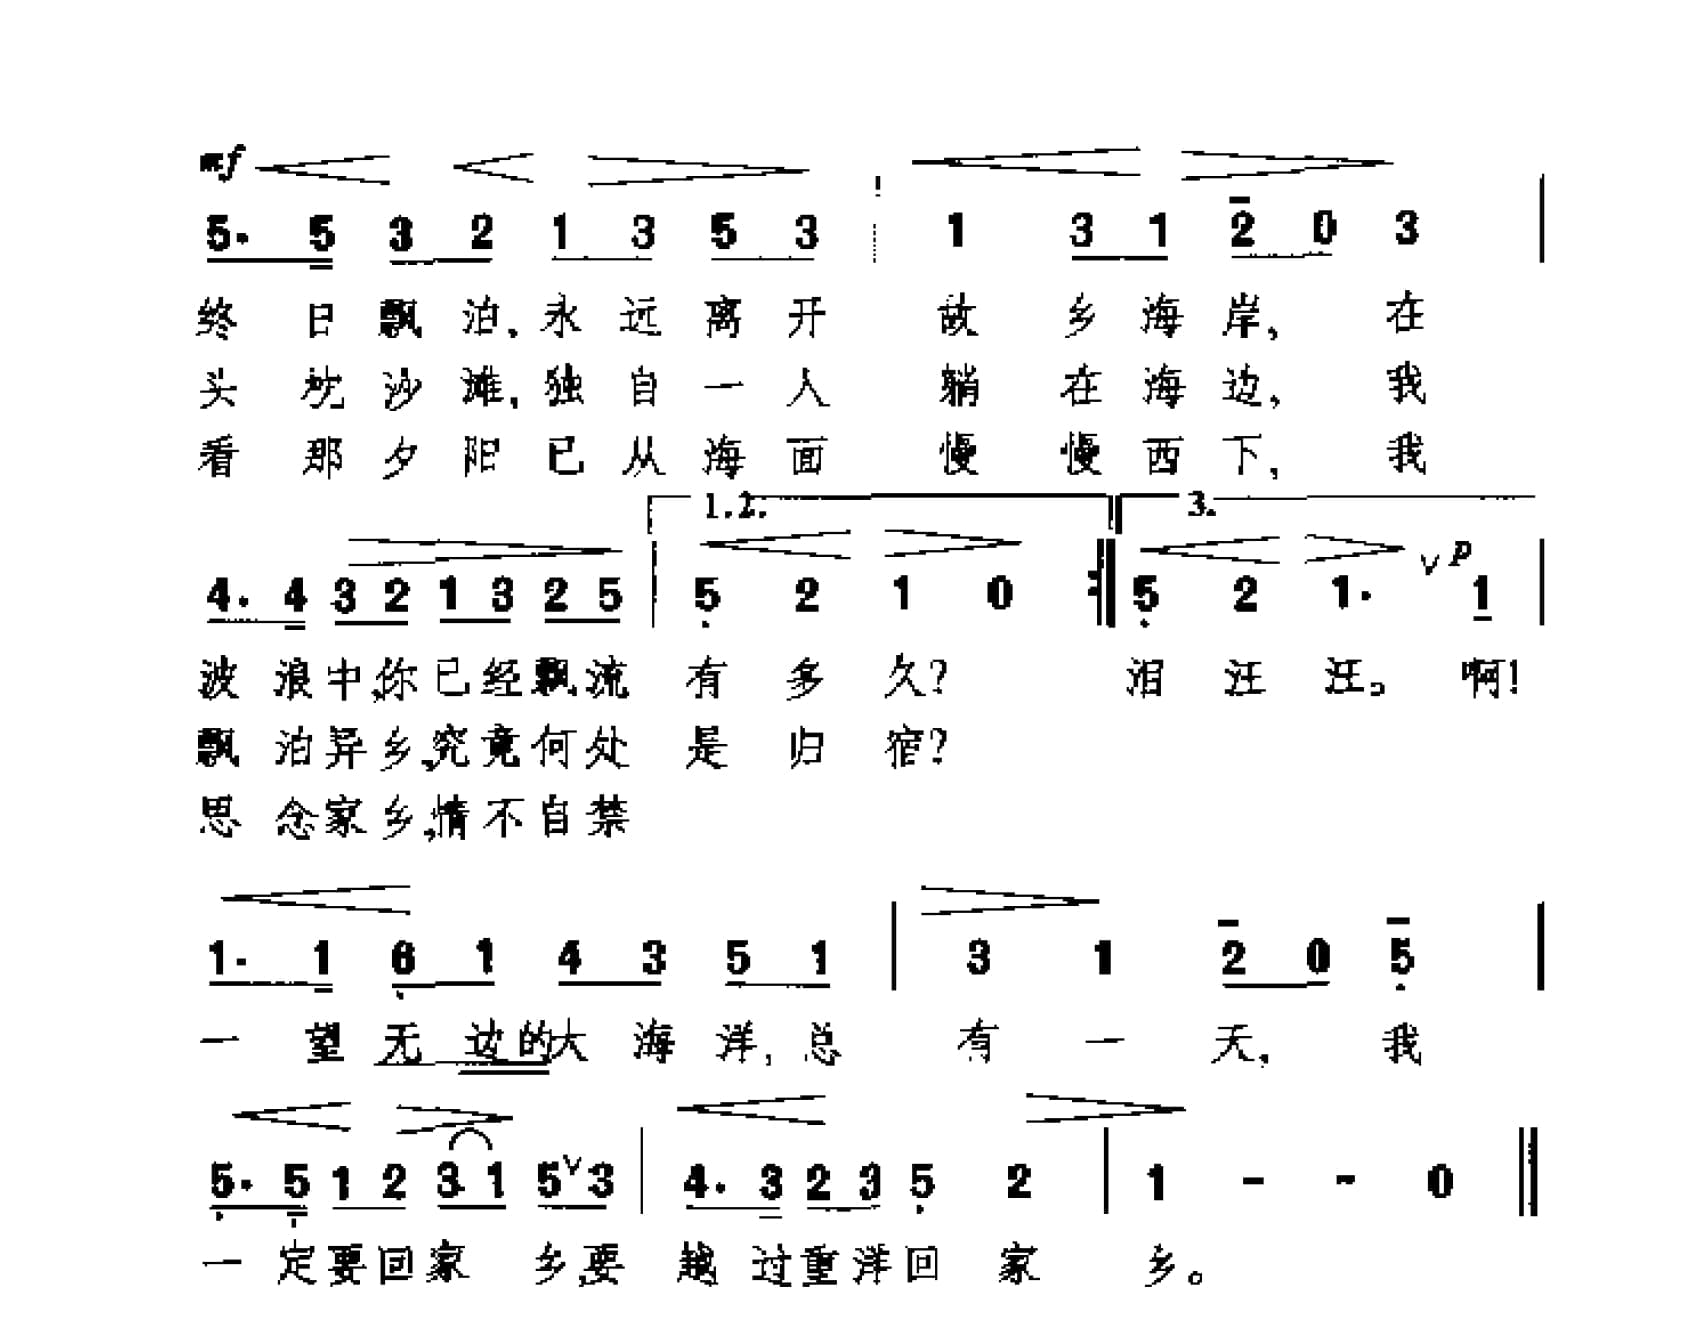 mf
5. 5 3 2 1 3 5 3 1 3 1 2 0 3
终 日 飘 泊, 永 远 离 开 故 乡 海 岸, 在
头 枕 沙 滩, 独 自 一 人 躺 在 海 边, 我
看 那 夕 阳 已 从 海 面 慢 慢 西 下, 我
1.2. 3.
4. 4 3 2 1 3 2 5 5 2 1 0 5 2 1. V p 1
波 浪 中, 你 已 经 飘 流 有 多 久? 泪 汪 汪。 啊!
飘 泊 异 乡, 究 竟 何 处 是 归 宿?
思 念 家 乡, 情 不 自 禁
1. 1 6 1 4 3 5 1 3 1 2 0 5
一 望 无 边 的 大 海 洋, 总 有 一 天, 我
5. 5 1 2 3 1 5 V 3 4. 3 2 3 5 2 1 - - 0
一 定 要 回 家 乡, 要 越 过 重 洋 回 家 乡。